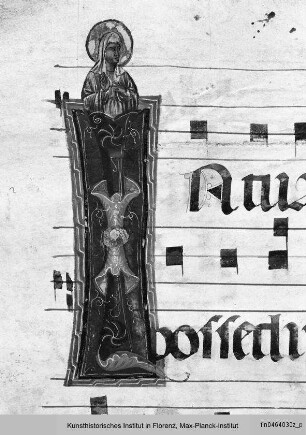 Natus
possedi
Kunsthistorisches Institut in Florenz, Max-Planck-Institut
fln0464030z_p